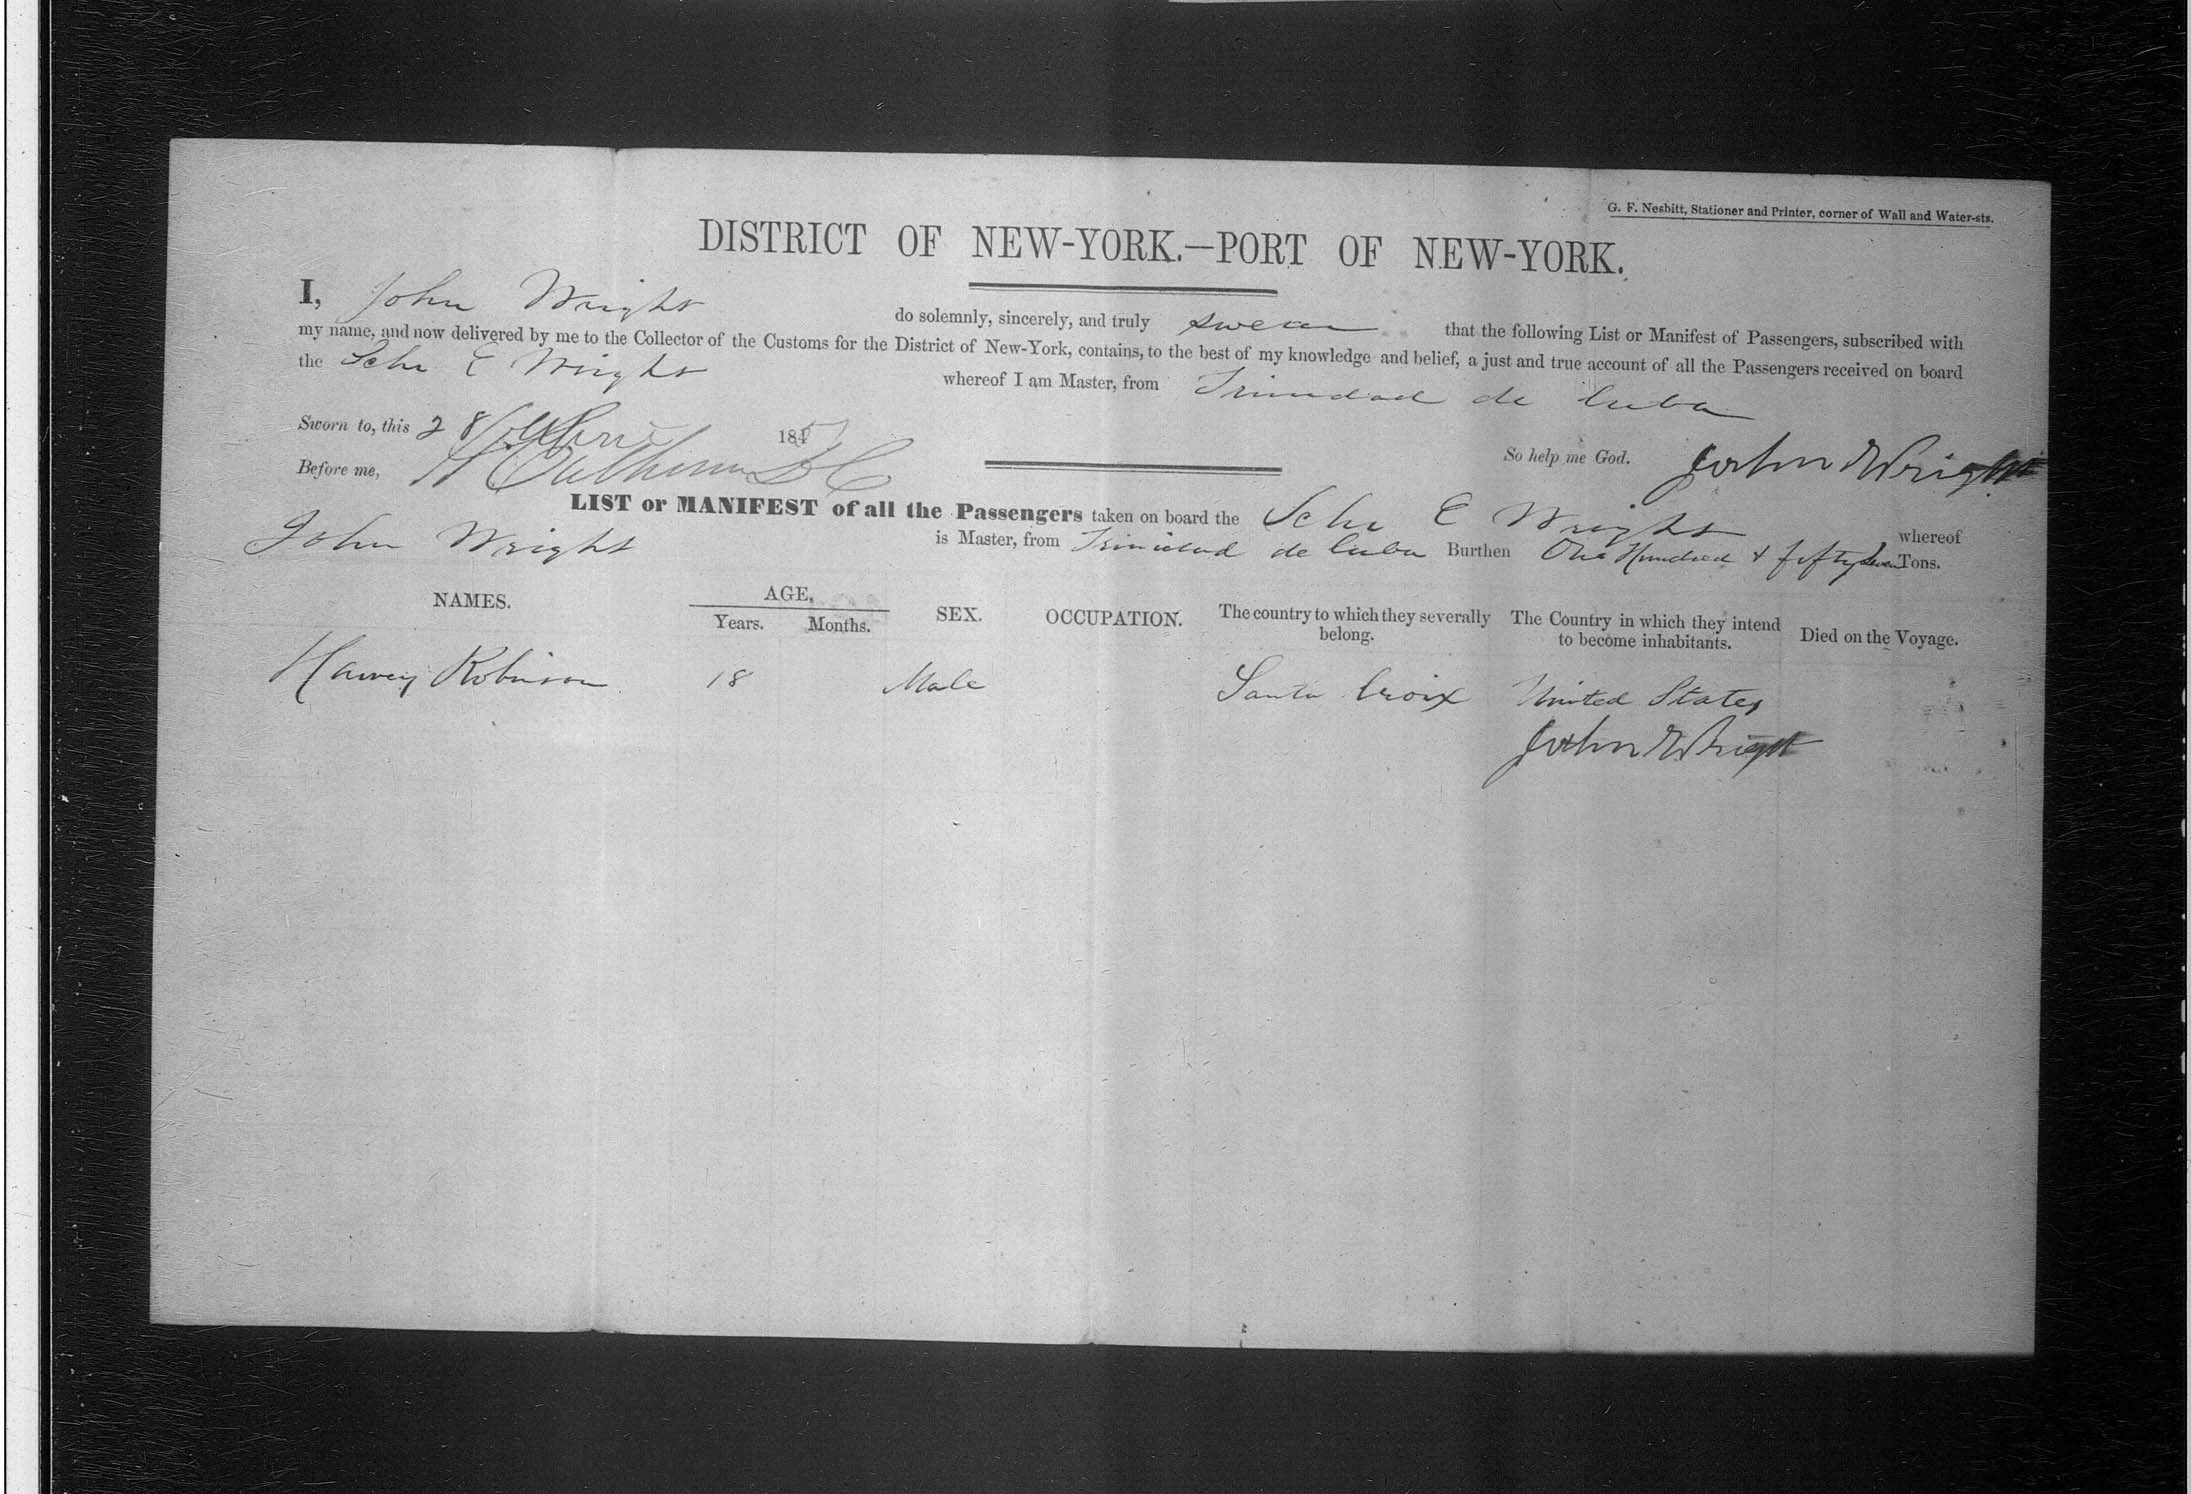 G. F. Nesbitt, Stationer and Printer, corner of Wall and Water-sts.
DISTRICT OF NEW-YORK.—PORT OF NEW-YORK.
I, John Wright do solemnly, sincerely, and truly swear that the following List or Manifest of Passengers, subscribed with
my name, and now delivered by me to the Collector of the Customs for the District of New-York, contains, to the best of my knowledge and belief, a just and true account of all the Passengers received on board
the Schr E Wright whereof I am Master, from Trinidad de Cuba
Sworn to, this 28 April 184
So help me God. John Wright
Before me,
LIST or MANIFEST of all the Passengers taken on board the Schr E Wright whereof
John Wright is Master, from Trinidad de Cuba Burthen One Hundred & fifty seven Tons.
NAMES. AGE. SEX. OCCUPATION. The country to which they severally belong. The Country in which they intend to become inhabitants. Died on the Voyage.
Years. Months.
Harvey Robinson 18 Male Santa Croix United States
John Wright